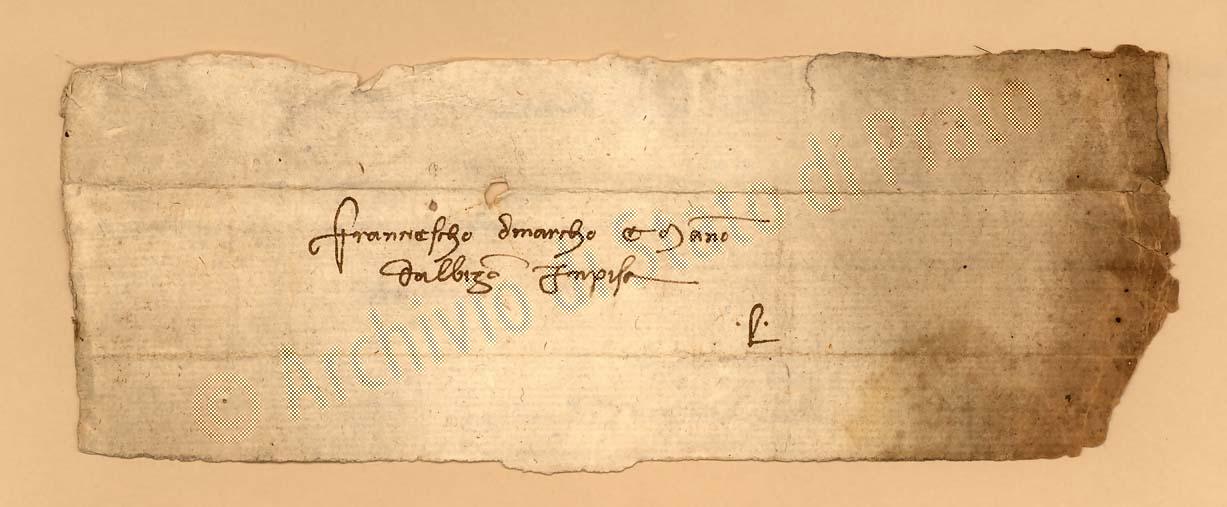 Franciescho dmarcho e Mano
dalbizo Inpisa
.L.
© Archivio di Stato di Prato